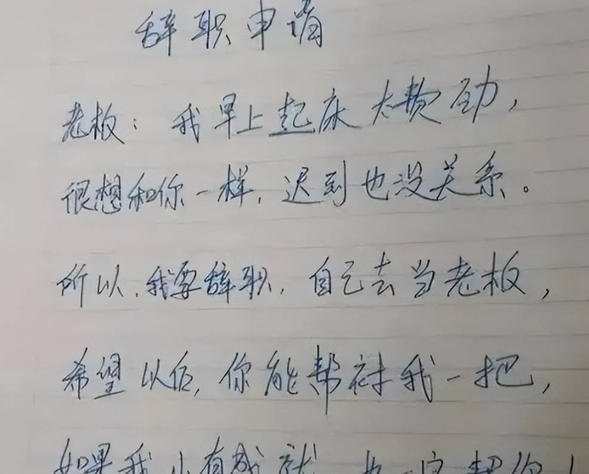 辞职申请
老板：我早上起床太费劲，
很想和你一样，迟到也没关系。
所以，我要辞职，自己去当老板，
希望以后，你能帮衬我一把，
如果我小有成就，也一定